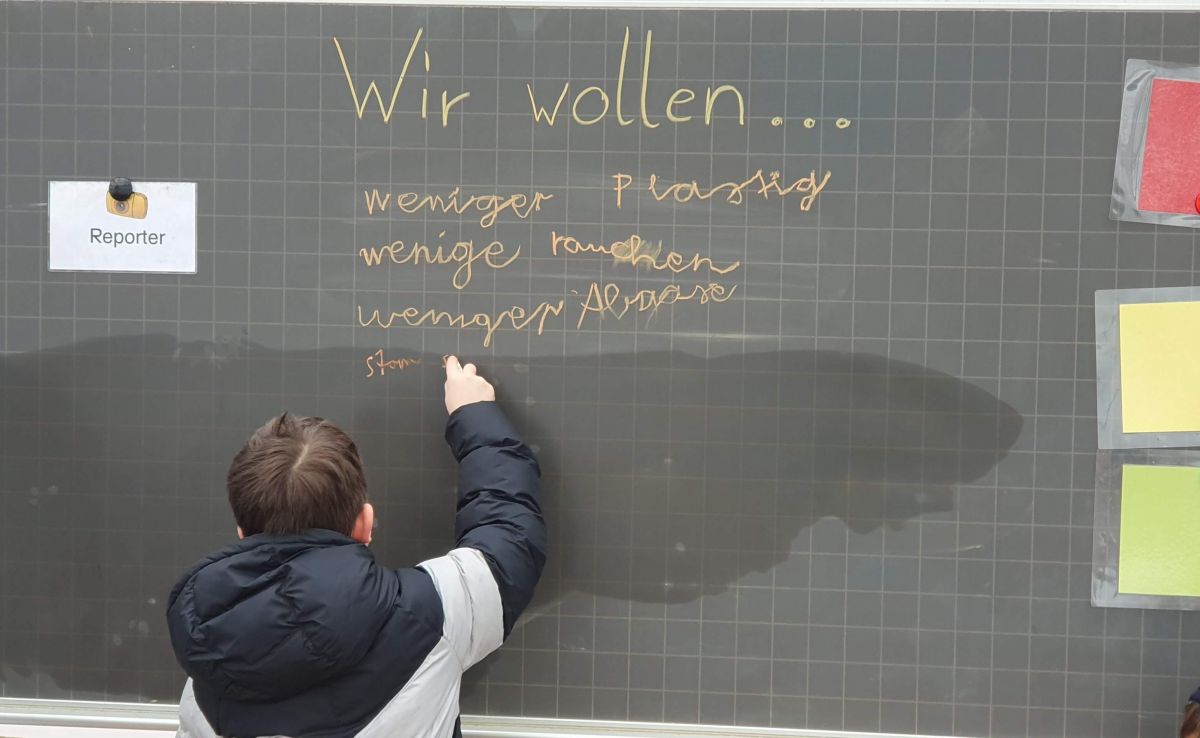 Wir wollen...
Reporter
weniger Plastig
wenige rauchen
weniger Abgase